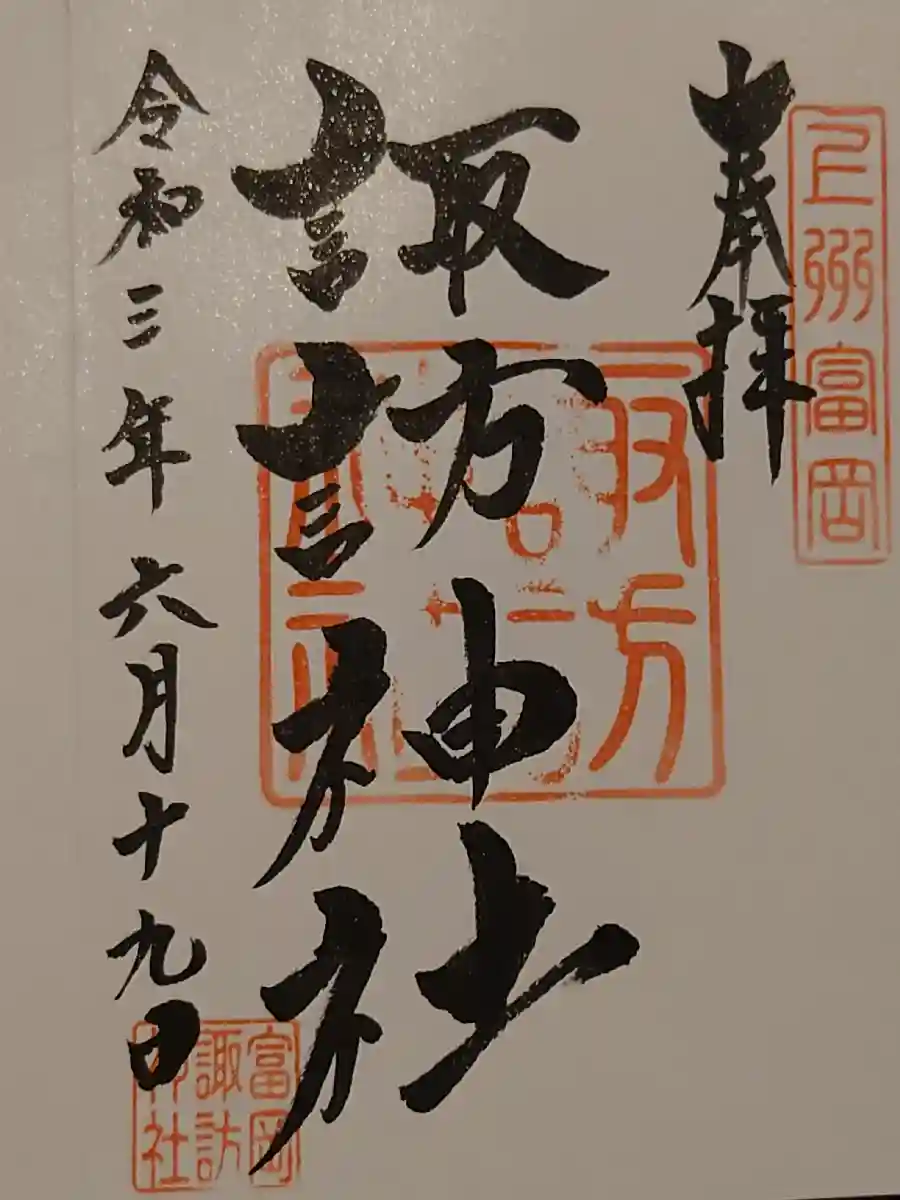 上州富岡
奉拝
諏訪神社
令和三年六月十九日
富岡
諏訪
神社